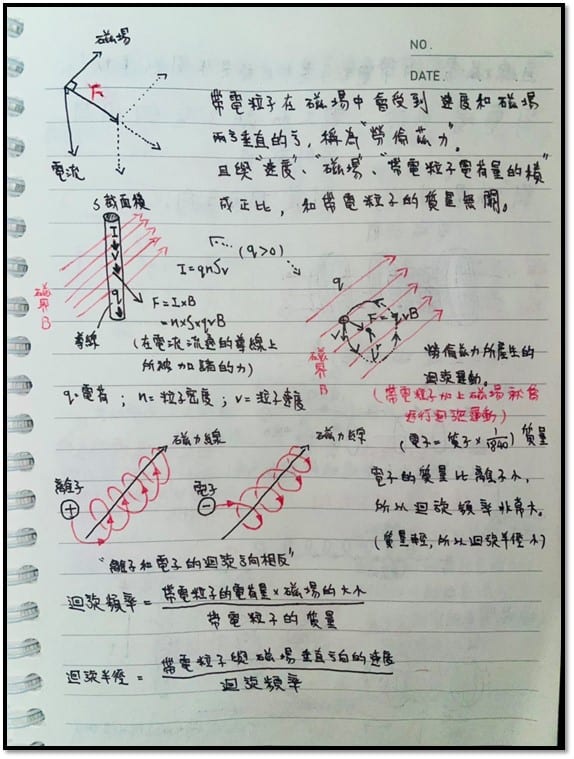 NO.
DATE.
磁場
F
電流
帶電粒子在磁場中會受到速度和磁場
兩者垂直的力, 稱為"勞倫茲力"。
且與"速度"、"磁場"、"帶電粒子電荷量的積"
成正比, 和帶電粒子的質量無關。
S截面積
I
V
q
磁界B
導線
I=qnSv
(q>0)
F=I×B
=n×S×qvB
(在電流流過的導線上
所被加諸的力)
q
V
F=qvB
磁界B
勞倫茲力所產生的
迴旋運動。
(帶電粒子加上磁場就會
進行迴旋運動)
q=電荷 ; n=粒子密度 ; v=粒子速度
(電子=質子×1/1840) 質量
磁力線
離子
+
磁力線
電子
-
電子的質量比離子小,
所以迴旋頻率非常大。
(質量輕,所以迴旋半徑小)
"離子和電子的迴旋方向相反"
迴旋頻率 = 帶電粒子的電荷量×磁場的大小
帶電粒子的質量
迴旋半徑 = 帶電粒子與磁場垂直方向的速度
迴旋頻率